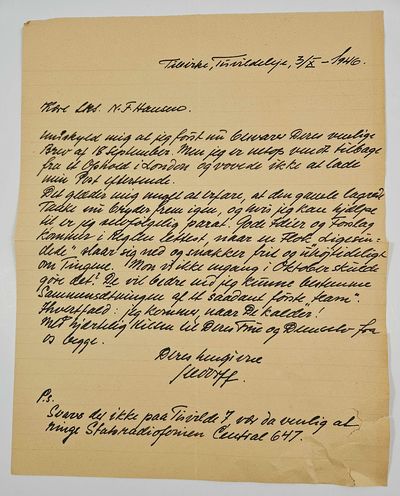 Tibirke, Tisvildeleje, 3/X – 1946.
Kære Lrs. N.F. Hansen.
Undskyld mig at jeg først nu besvarer Deres venlige
Brev af 18 September. Men jeg er netop vendt tilbage
fra et Ophold i London og vovede ikke at lade
min Post eftersende.
Det glæder mig meget at erfare, at den gamle lagrede
Tanke nu bryder frem igen, og hvis jeg kan hjælpe
til er jeg selvfølgelig parat. Gode Ideer og Forslag
kommer i Reglen lettest, naar en Flok ligesin-
dede slaar sig ned og snakker frit og uhøjtideligt
om Tingene. Mon vi ikke engang i Oktober skulde
gøre det? De vil bedre end jeg kunne bestemme
Sammensætningen af et saadant første "Team".
Ihvertfald: jeg kommer, naar De kalder!
Med hjertelig Hilsen til Deres Frue og Dem selv fra
os begge.
Deres hengivne
P.s.
Svares der ikke paa Tisvilde 7 vær da venlig at
ringe Statsradiofonien Central 647.